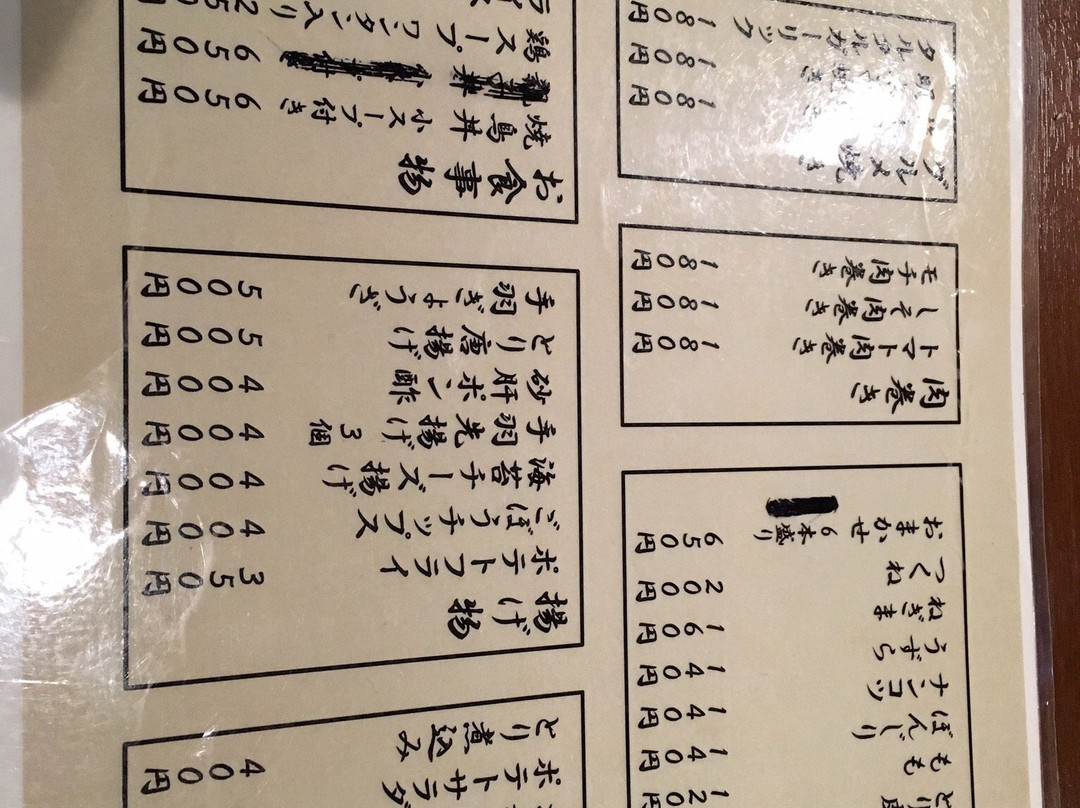 もも 120円
ぼんじり 140円
ナンコツ 140円
うずら 140円
ねぎま 160円
つくね 200円
おまかせ 6本盛り 650円
肉巻き
トマト肉巻き 180円
しそ肉巻き 180円
モチ肉巻き 180円
グルメ焼き
180円
180円
タルタルガーリック 180円
ポテトサラダ
とり煮込み 400円
揚げ物
ポテトフライ 350円
ごぼうチップス 400円
海苔チーズ揚げ 400円
手羽先揚げ 3個 400円
砂肝ポン酢 400円
とり唐揚げ 500円
手羽ぎょうざ 500円
お食事物
焼鳥丼 小スープ付き 650円
650円
鶏スープ ワンタン入り